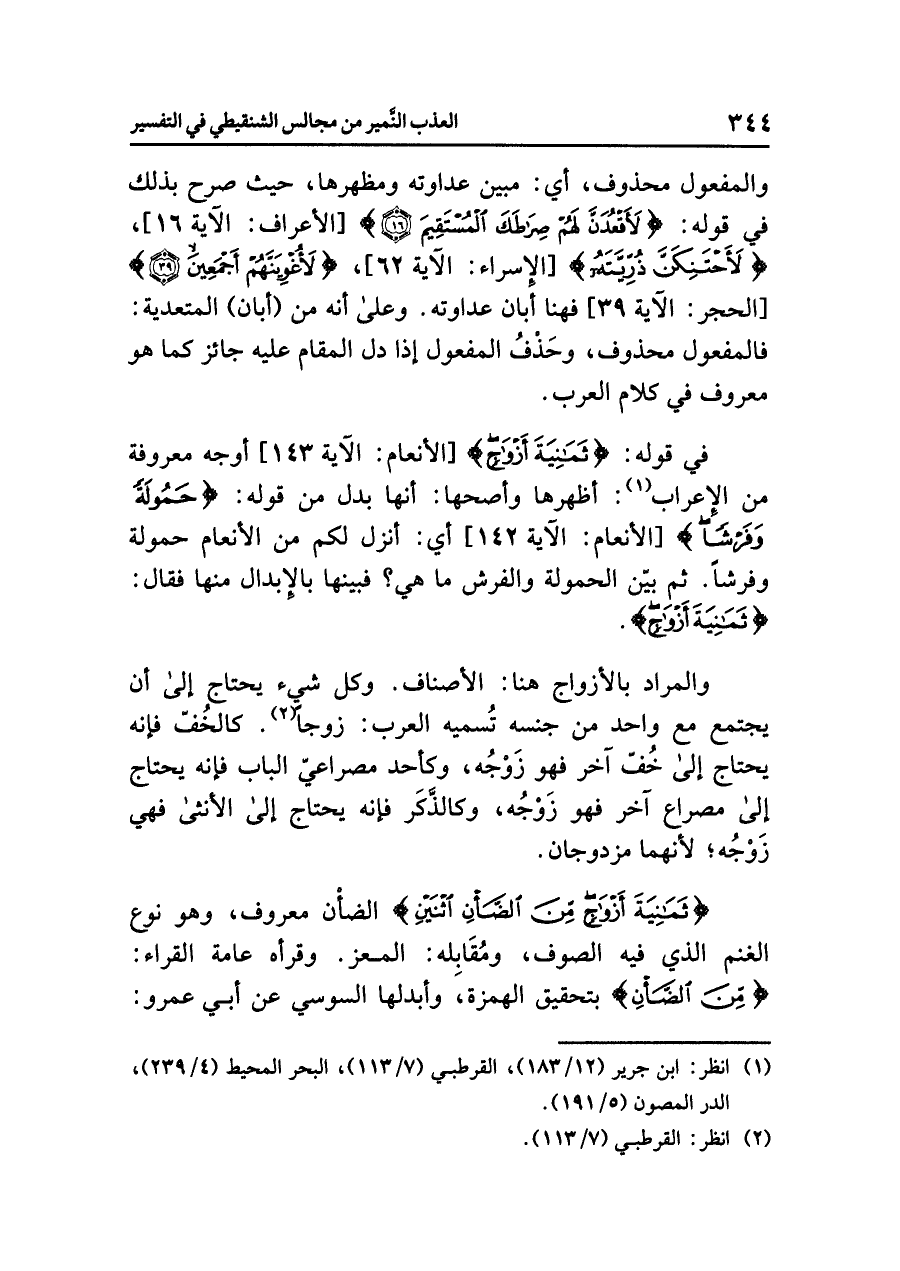 ٣٤٤ العذب النَّمير من مجالس الشنقيطي في التفسير
والمفعول محذوف، أي: مبين عداوته ومظهرها، حيث صرح بذلك
في قوله: ﴿لَأَقْعُدَنَّ لَهُمْ صِرَٰطَكَ ٱلْمُسْتَقِيمَ ۝١٦﴾ [الأعراف: الآية ١٦]،
﴿لَأَحْتَنِكَنَّ ذُرِّيَّتَهُۥ﴾ [الإسراء: الآية ٦٢]، ﴿لَأُغْوِيَنَّهُمْ أَجْمَعِينَ ۝٣٩﴾
[الحجر: الآية ٣٩] فهنا أبان عداوته. وعلىٰ أنه من (أبان) المتعدية:
فالمفعول محذوف، وحَذْفُ المفعول إذا دل المقام عليه جائز كما هو
معروف في كلام العرب.
في قوله: ﴿ثَمَٰنِيَةَ أَزْوَٰجٍۖ﴾ [الأنعام: الآية ١٤٣] أوجه معروفة
من الإعراب(١): أظهرها وأصحها: أنها بدل من قوله: ﴿حَمُولَةً
وَفَرْشًاۖ﴾ [الأنعام: الآية ١٤٢] أي: أنزل لكم من الأنعام حمولة
وفرشاً. ثم بيّن الحمولة والفرش ما هي؟ فبينها بالإبدال منها فقال:
﴿ثَمَٰنِيَةَ أَزْوَٰجٍۖ﴾.
والمراد بالأزواج هنا: الأصناف. وكل شيء يحتاج إلىٰ أن
يجتمع مع واحد من جنسه تُسميه العرب: زوجاً(٢). كالخُفّ فإنه
يحتاج إلىٰ خُفّ آخر فهو زَوْجُه، وكأحد مصراعيّ الباب فإنه يحتاج
إلىٰ مصراع آخر فهو زَوْجُه، وكالذَّكَر فإنه يحتاج إلىٰ الأنثىٰ فهي
زَوْجُه؛ لأنهما مزدوجان.
﴿ثَمَٰنِيَةَ أَزْوَٰجٍۖ مِّنَ ٱلضَّأْنِ ٱثْنَيْنِ﴾ الضأْن معروف، وهو نوع
الغنم الذي فيه الصوف، ومُقَابِله: المعز. وقرأه عامة القراء:
﴿مِّنَ ٱلضَّأْنِ﴾ بتحقيق الهمزة، وأبدلها السوسي عن أبي عمرو:
(١) انظر: ابن جرير (١٨٣/١٢)، القرطبي (١١٣/٧)، البحر المحيط (٢٣٩/٤)،
الدر المصون (١٩١/٥).
(٢) انظر: القرطبي (١١٣/٧).